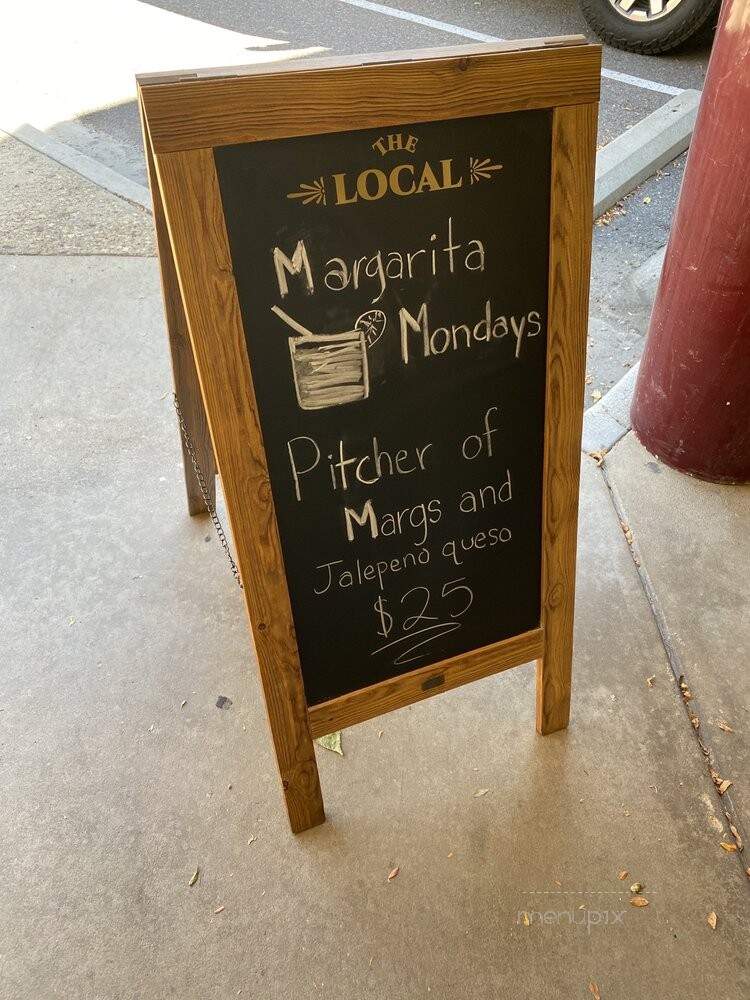 THE
LOCAL
Margarita
Mondays
Pitcher of
Margs and
Jalepeno queso
$25
menupix